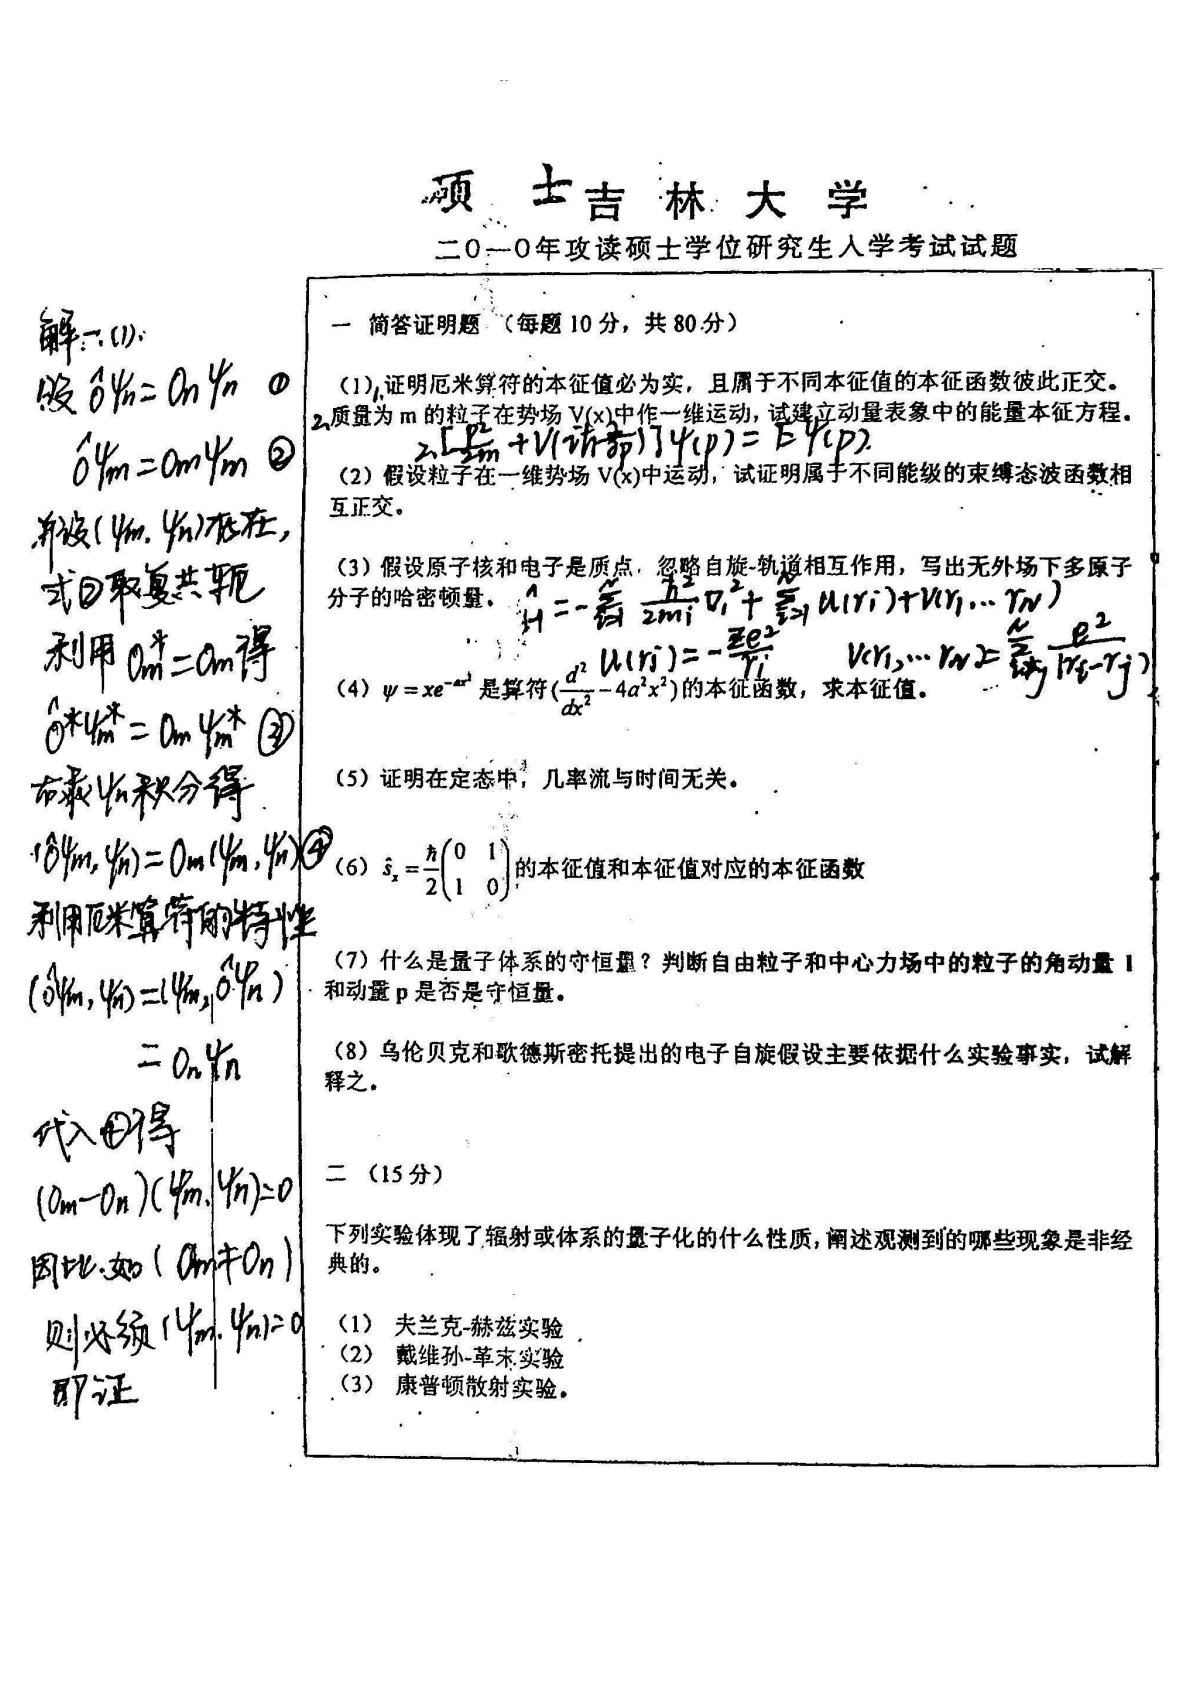 硕 士 吉 林 大 学
二0一0年攻读硕士学位研究生入学考试试题
一 简答证明题 (每题 10 分，共 80 分)
(1) 1.证明厄米算符的本征值必为实，且属于不同本征值的本征函数彼此正交。
2.质量为 m 的粒子在势场 V(x)中作一维运动, 试建立动量表象中的能量本征方程.
2.[p²/2m + V(iħ ∂/∂p)]ψ(p) = Eψ(p).
(2) 假设粒子在一维势场 V(x)中运动，试证明属于不同能级的束缚态波函数相
互正交。
(3) 假设原子核和电子是质点，忽略自旋-轨道相互作用，写出无外场下多原子
分子的哈密顿量。
Ĥ = -∑ᵢ₌₁ᴺ ħ²/2mᵢ ∇ᵢ² + ∑ᵢ₌₁ᴺ U(rᵢ) + V(r₁... r_N)
U(rᵢ) = -Ze²/rᵢ V(r₁,... r_N) = ∑ e²/|rᵢ-rⱼ|
(4) ψ = xe^(-ax²) 是算符(d²/dx² - 4a²x²)的本征函数，求本征值。
(5) 证明在定态中，几率流与时间无关。
(6) ŝₓ = ħ/2 (0 1; 1 0) 的本征值和本征值对应的本征函数
(7) 什么是量子体系的守恒量？判断自由粒子和中心力场中的粒子的角动量 l
和动量 p 是否是守恒量。
(8) 乌伦贝克和歌德斯密托提出的电子自旋假设主要依据什么实验事实，试解
释之。
二 (15 分)
下列实验体现了辐射或体系的量子化的什么性质, 阐述观测到的哪些现象是非经
典的。
(1) 夫兰克-赫兹实验
(2) 戴维孙-革末实验
(3) 康普顿散射实验。
解:一.(1).
设 Ôψn = Onψn ①
Ôψm = Omψm ②
并设(ψm, ψn)存在,
式②取复共轭
利用 Om* = Om得
Ô*ψm* = Omψm* ③
右乘ψn积分得
(Ôψm, ψn) = Om(ψm, ψn) ④
利用厄米算符的特性
(Ôψm, ψn) = (ψm, Ôψn)
= Onψn
代入④得
(Om-On)(ψm, ψn)=0
因此.如(Om≠On)
则必须(ψm, ψn)=0
即证